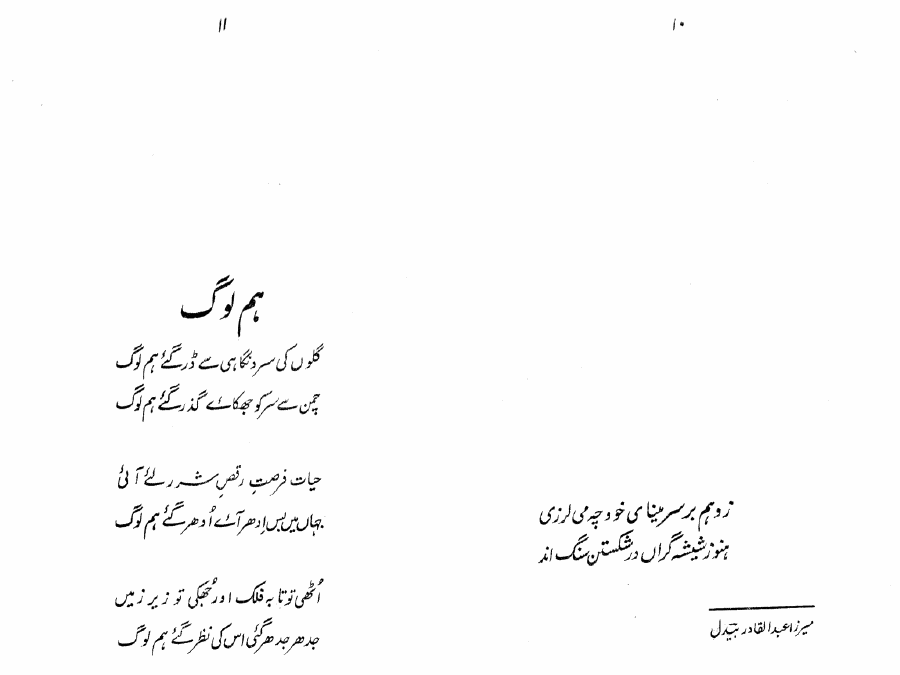 ۱۰
ز وہم بر سر مینای خود چہ می لرزی
ہنوز شیشہ گراں در شکستن سنگ اند
میرزا عبدالقادر بیدل
۱۱
ہم لوگ
گلوں کی سرد نگاہی سے ڈر گئے ہم لوگ
چمن سے سر کو جھکائے گذر گئے ہم لوگ
حیات فرصتِ رقصِ شرر لئے آئی
جہاں میں بس اِدھر آئے اُدھر گئے ہم لوگ
اُٹھی تو تا بہ فلک اور جُھکی تو زیر زمیں
جدھر جدھر گئی اس کی نظر گئے ہم لوگ